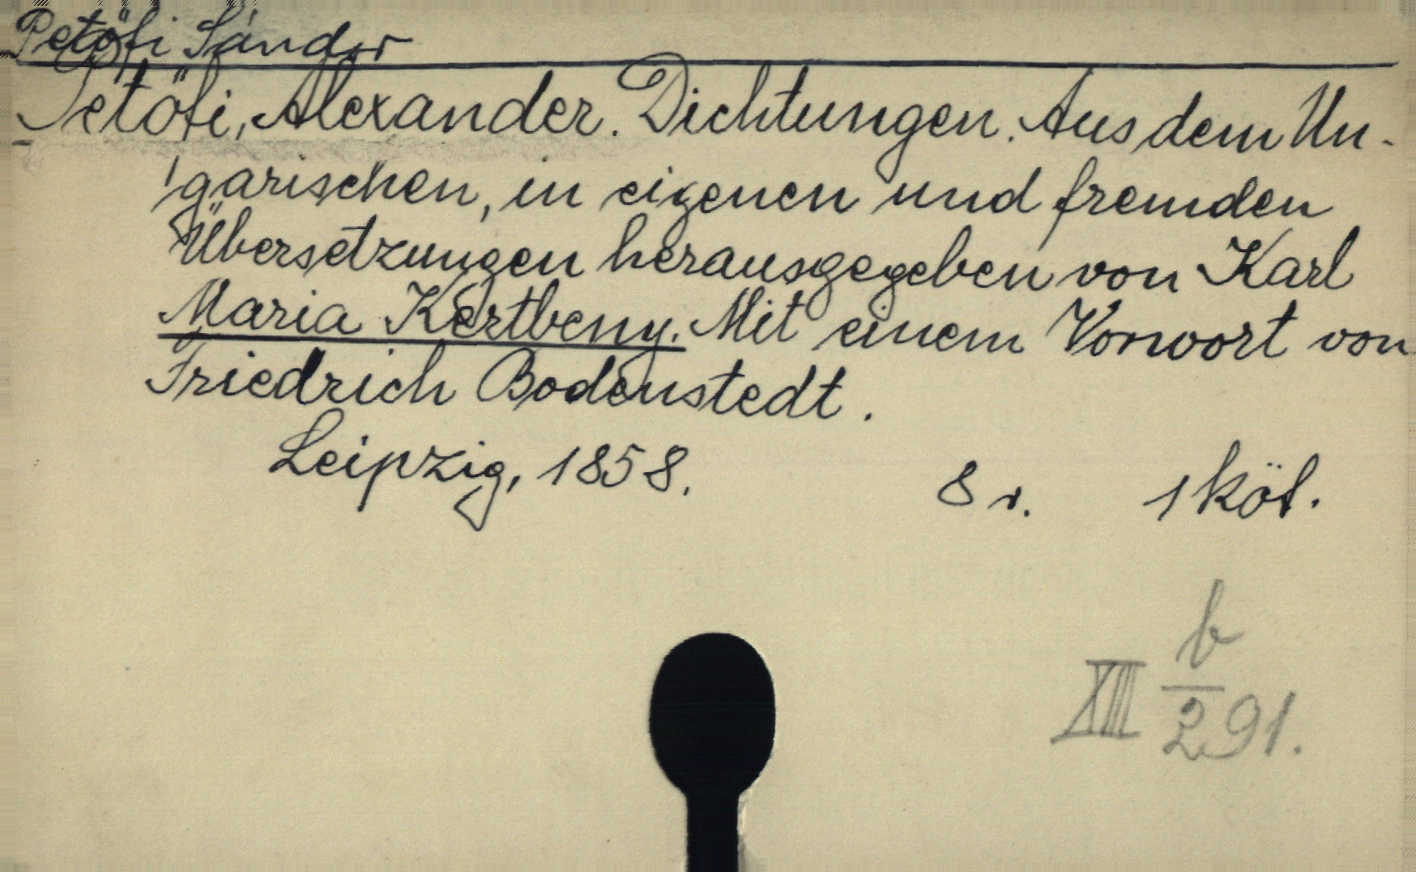 Petöfi Sándor
Petöfi, Alexander. Dichtungen. Aus dem Un-
garischen, in eigenen und fremden
Übersetzungen herausgegeben von Karl
Maria Kertbeny. Mit einem Vorwort von
Friedrich Bodenstedt.
Leipzig, 1858. 8 r. 1 köt.
b
XIII 291.